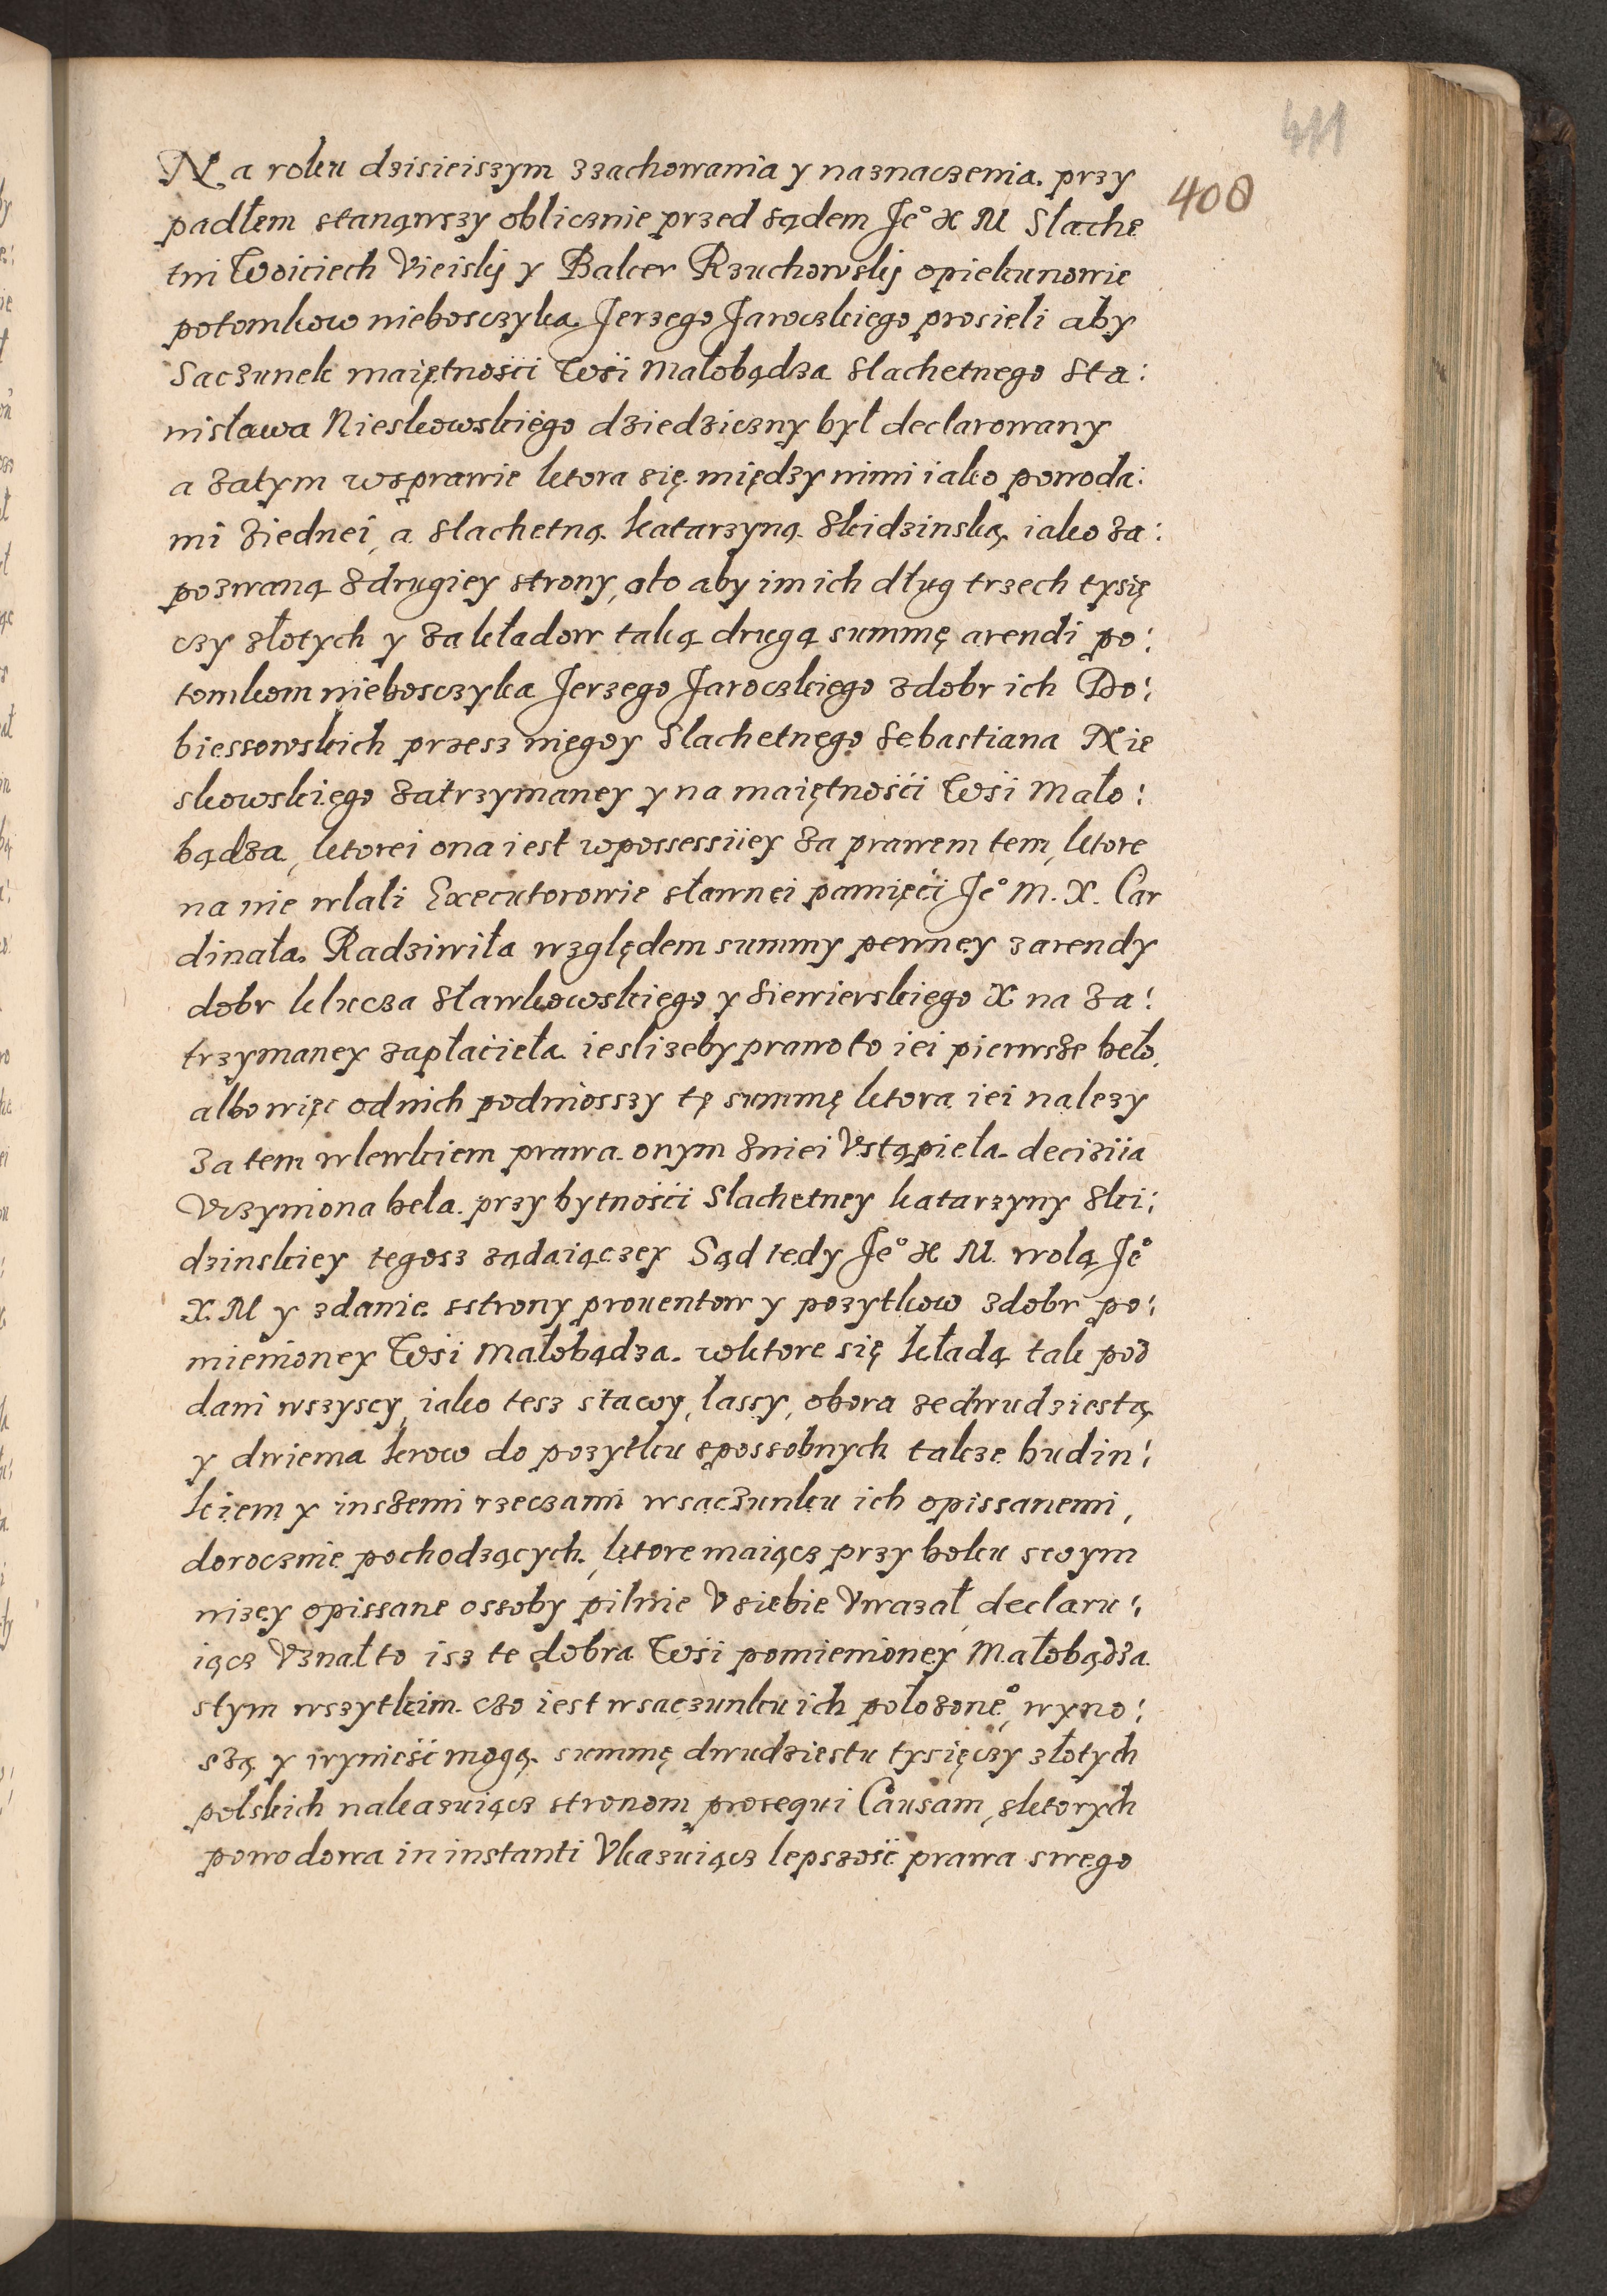 411
408
Na roku dzisieiszym zzachowania y naznaczenia przy
padłem stanąwszy oblicznie przed sądem Je° X M Slache
tni Woiciech Vieiskij y Balcer Rzuchowskij opiekunowie
potomkow nieboszczyka Jerzego Jaroczkiego prosieli aby
Saczunek maiętności Wsi Małobądza slachetnego Sta:
nisława Nieskowskiego dziedziczny był declarowany
a zatym wsprawie ktora się między nimi iako powoda:
mi ziednei, a slachetną Katarzyną Skidzinską iako za:
pozwaną zdrugiey strony, oto aby im ich dług trzech tysię
czy złotych y zakładow taką drugą summę arendi po:
tomkom niebosczyka Jerzego Jaroczkiego zdobr ich Do:
biessowskich przesz niegoy Slachetnego Sebastiana Nie
skowskiego zatrzymaney y na maiętności Wsi Mało:
bądza, ktorei ona iest wpossessiiey za prawem tem, ktore
na nie wlali Executorowie sławnei pamięci Je° M. X. Car
dinała Radziwiła względem summy pewney zarendy
dobr klucza Sławkowskiego y Siewierskiego X na Za:
trzymaney zapłacieła iesliżeby prawo to iei pierwsze beło
albo więc odnich podniosszy tę summę ktora iei nalezy
Za tem wlewkiem prawa onym zniei Vstąpiela deciziia
Vczyniona bela przy bytności Slachetney Katarzyny Ski:
dzinskiey tegosz ządaiączey Sąd tedy Je° X M wolą Je°
X. M y zdanie sstrony prouentow y pozytkow zdobr po:
mienioney Wsi Małobądza wktore się kładą tak pod
dani wszyscy, iako tesz stawy, lassy, obora zedwudziestą
y dwiema krow do pozytku spossobnych takze budin:
kiem y inszemi rzeczami wsaczunku ich opissanemi,
dorocznie pochodzących, ktore maiącz przy boku swym
nizey opissane ossoby pilnie V siebie Vwazał, declaru:
iącz Vznał to isz te dobra Wsi pomienioney Małobądza
stym wszytkim czo iest wsaczunku ich położone°, wyno:
szą y wynieść mogą summę dwudziestu tysięczy złotych
polskich nakazuiącz stronom prosequi Causam, zktorych
powodowa in instanti Vkazuiącz lepszość prawa swego